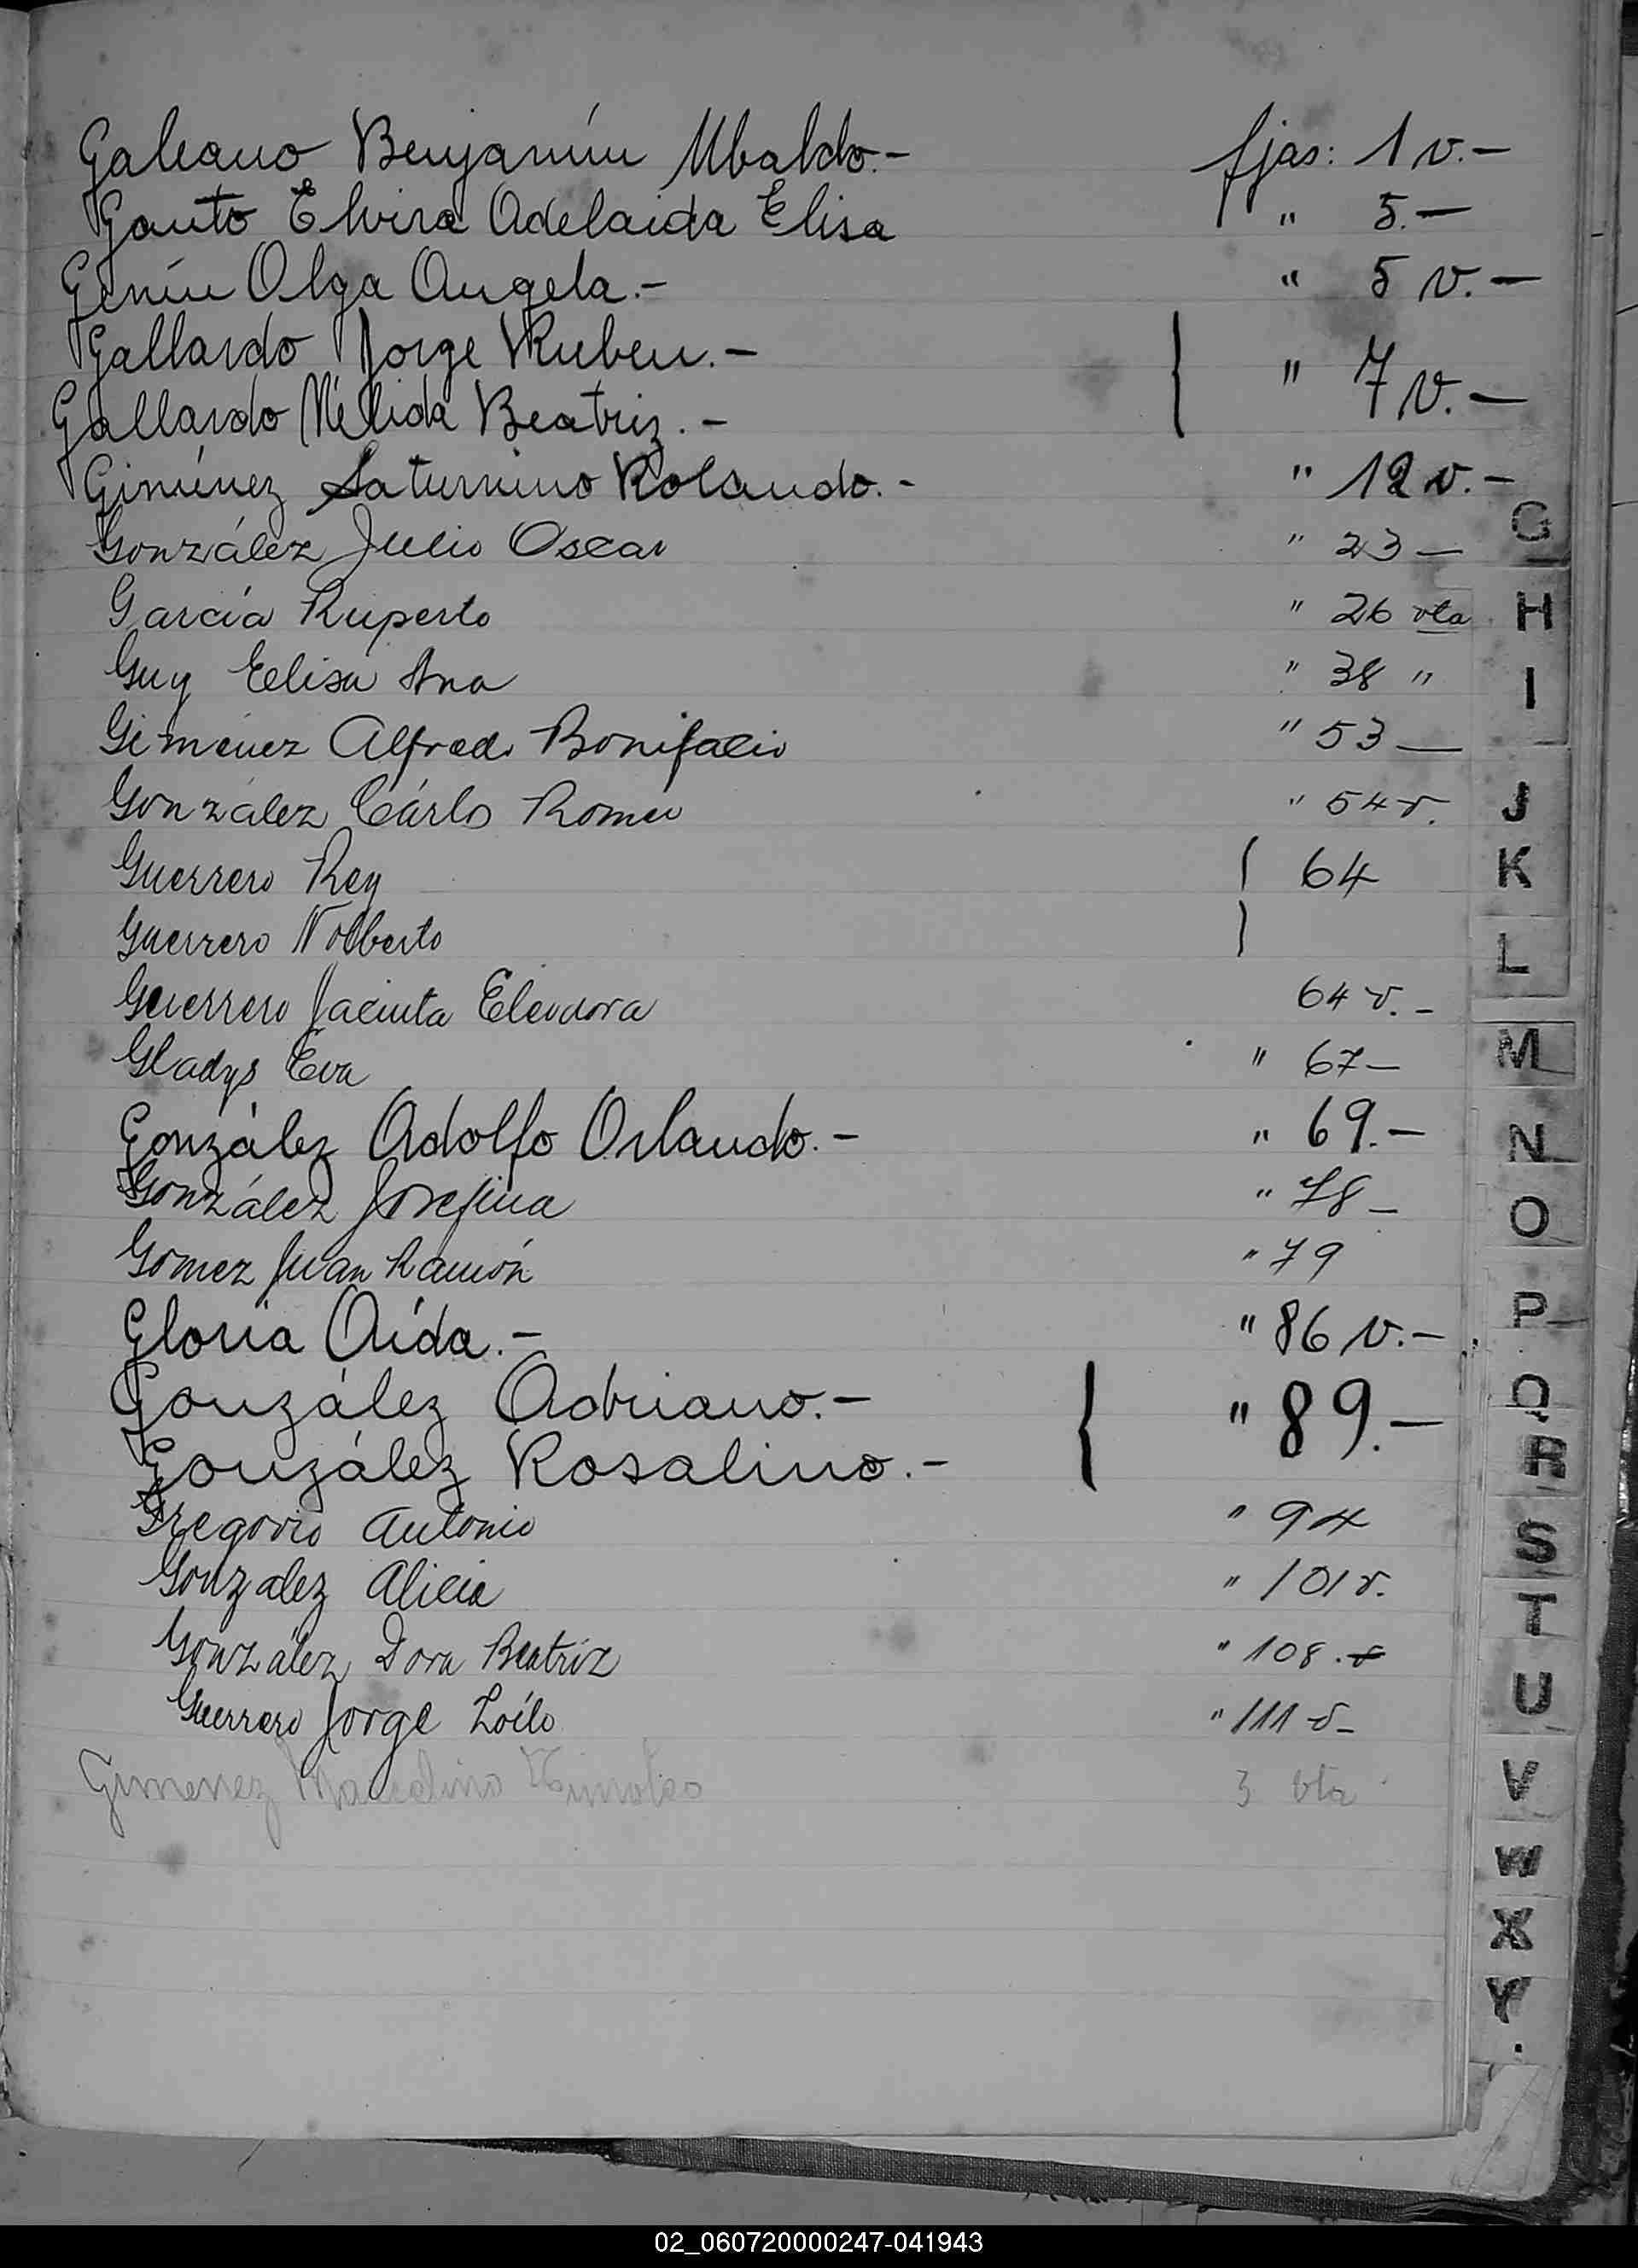 Galeano Benjamín Ubaldo.- fjas: 1 v.-
Gauto Elvira Adelaida Elisa " 5.-
Genín Olga Angela.- " 5 v.-
Gallardo Jorge Ruben.-
Gallardo Nélida Beatriz.- " 7 v.-
Giménez Saturnino Rolando.- " 12 v.-
González Julio Oscar " 23 -
García Ruperto " 26 vta
Guy Eelisa Ana " 38 "
Gimenez Alfredo Bonifacio " 53 -
González Cárlos Romeo " 54 v.
Guerrero Rey 64
Guerrero Nolberto
Guerrero Jacinta Eleodora 64 v.-
Gladys Eva " 67-
González Adolfo Orlando.- " 69.-
González Josefina " 78 -
Gomez Juan Ramón " 79
Gloria Aída.- " 86 v.-
González Adriano.- " 89.-
González Rosalino.-
Gregorio Antonio " 94
Gonzalez Alicia " 101 v.
González Dora Beatriz " 108.
Guerrero Jorge Zoílo " 111 v-
Gimenez Marcelino Timoteo 3 vta
G
H
I
J
K
L
M
N
O
P
Q
R
S
T
U
V
W
X
Y
02_060720000247-041943